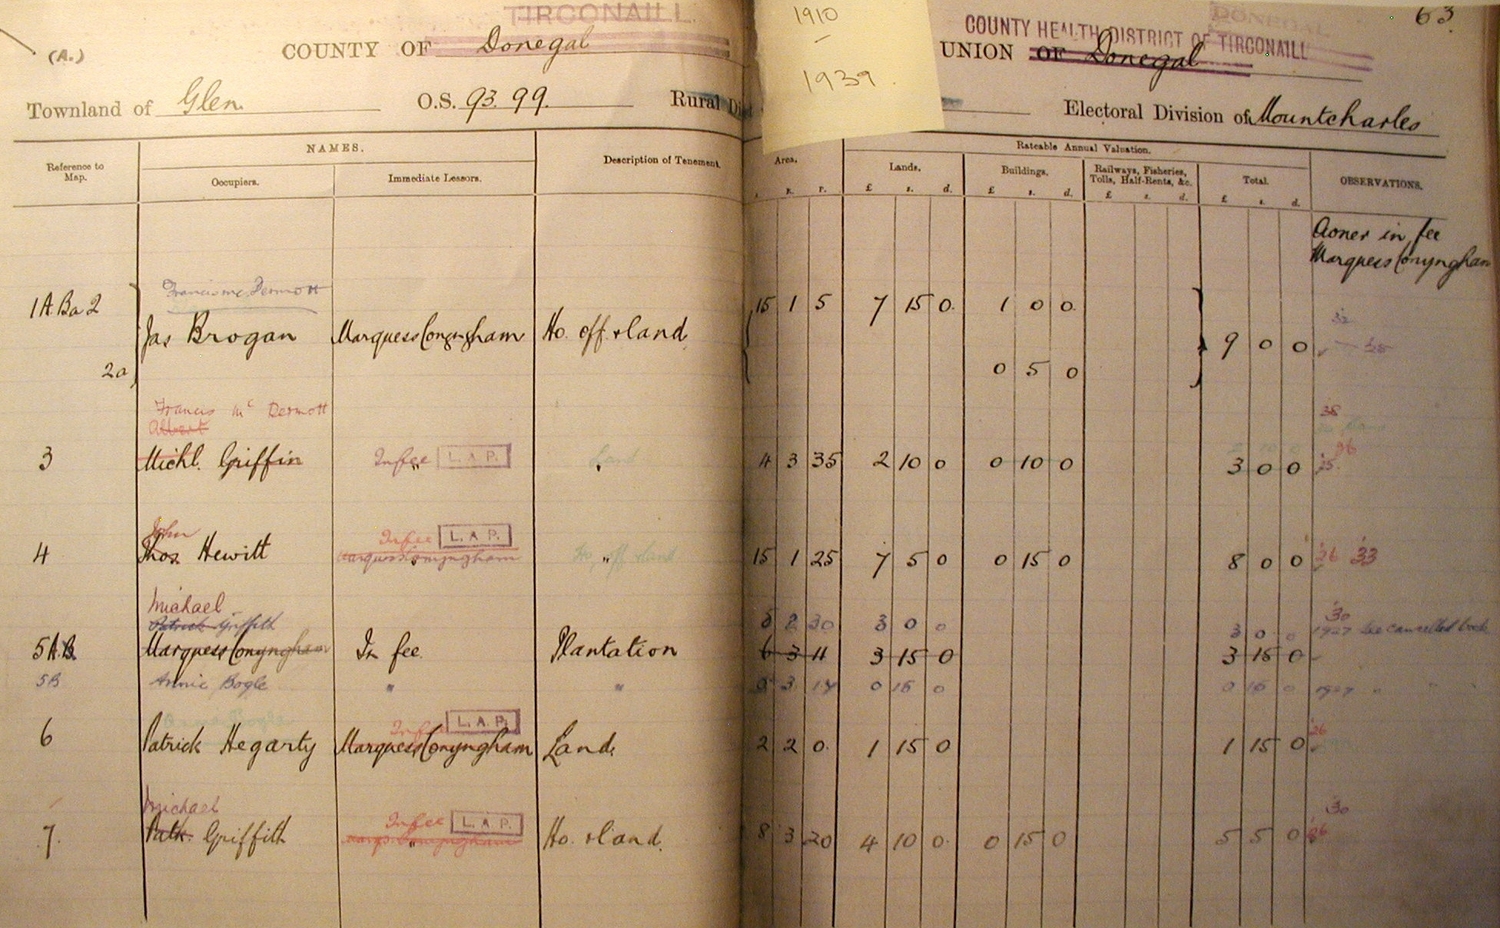 TIRCONAILL
(A.) COUNTY OF Donegal
1910
1939.
COUNTY HEALTH DISTRICT OF TIRCONAILL
DONEGAL
63
UNION OF Donegal
Townland of Glen. O.S. 93. 99. Rural Di
Electoral Division of Mountcharles
Reference to Map. NAMES. Description of Tenement. Area. Rateable Annual Valuation. OBSERVATIONS.
Occupiers. Immediate Lessors. R. P. Lands. Buildings. Railways, Fisheries, Tolls, Half-Rents, &c. Total.
£ s. d. £ s. d. £ s. d. £ s. d.
Aoner in fee
Marquess Conyngham
Francis McDermott
1ABa2 15 1 5 7 15 0. 1 0 0
Jas Brogan Marquess Conyngham Ho. off. & land 9 0 0
2a 0 5 0
Francis Mc Dermott 38
Albert
3 Michl. Griffin In fee L.A.P. " Land 4 3 35 2 10 0 0 10 0 3 0 0
John In fee L.A.P.
4 Thos. Hewitt Marquess Conyngham " Ho, off & land 15 1 25 7 5 0 0 15 0 8 0 0 '26 '33
Michael '30
Patrick Griffith 5 2 30 3 0 0 3 0 0 1927 See cancelled book
5A.B. Marquess Conyngham In fee. Plantation 6 3 4 3 15 0 3 15 0
5B Annie Bogle " " 0 3 14 0 15 0 0 15 0 1927 "
Annie Bogle In fee L.A.P.
6 Patrick Hegarty Marquess Conyngham Land. 2 2 0. 1 15 0 1 15 0 '26
Michael In fee L.A.P. '30
7. Patk. Griffith Marqs. Conyngham " Ho. & land. 8 3 20 4 10 0. 0 15 0 5 5 0 '26